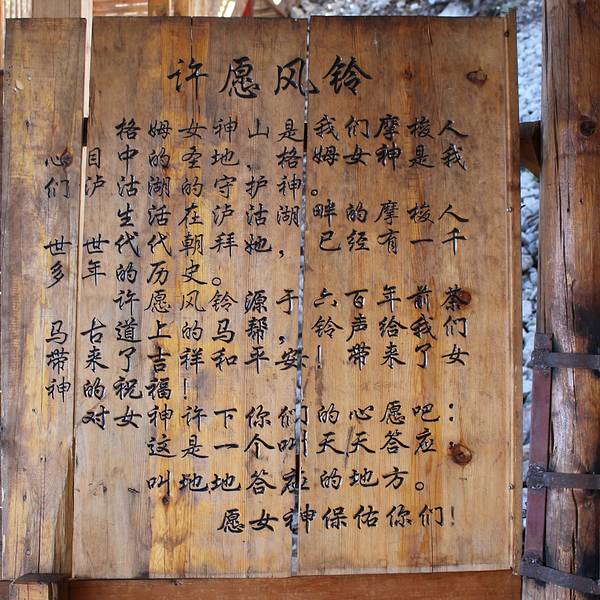 许愿风铃
格姆女神山是我们摩梭人
心目中的圣地,格姆女神是我
们泸沽湖的守护神。
生活在泸沽湖畔的摩梭人
世世代代朝拜她,已经有一千
多年的历史。
许愿风铃源于六百年前茶
马古道上的马帮,铃声给我们
带来了吉祥和平安!带来了女
神的祝福!
对女神许下你们的心愿吧:
这是一个叫天天答应,
叫地地答应的地方。
愿女神保佑你们!